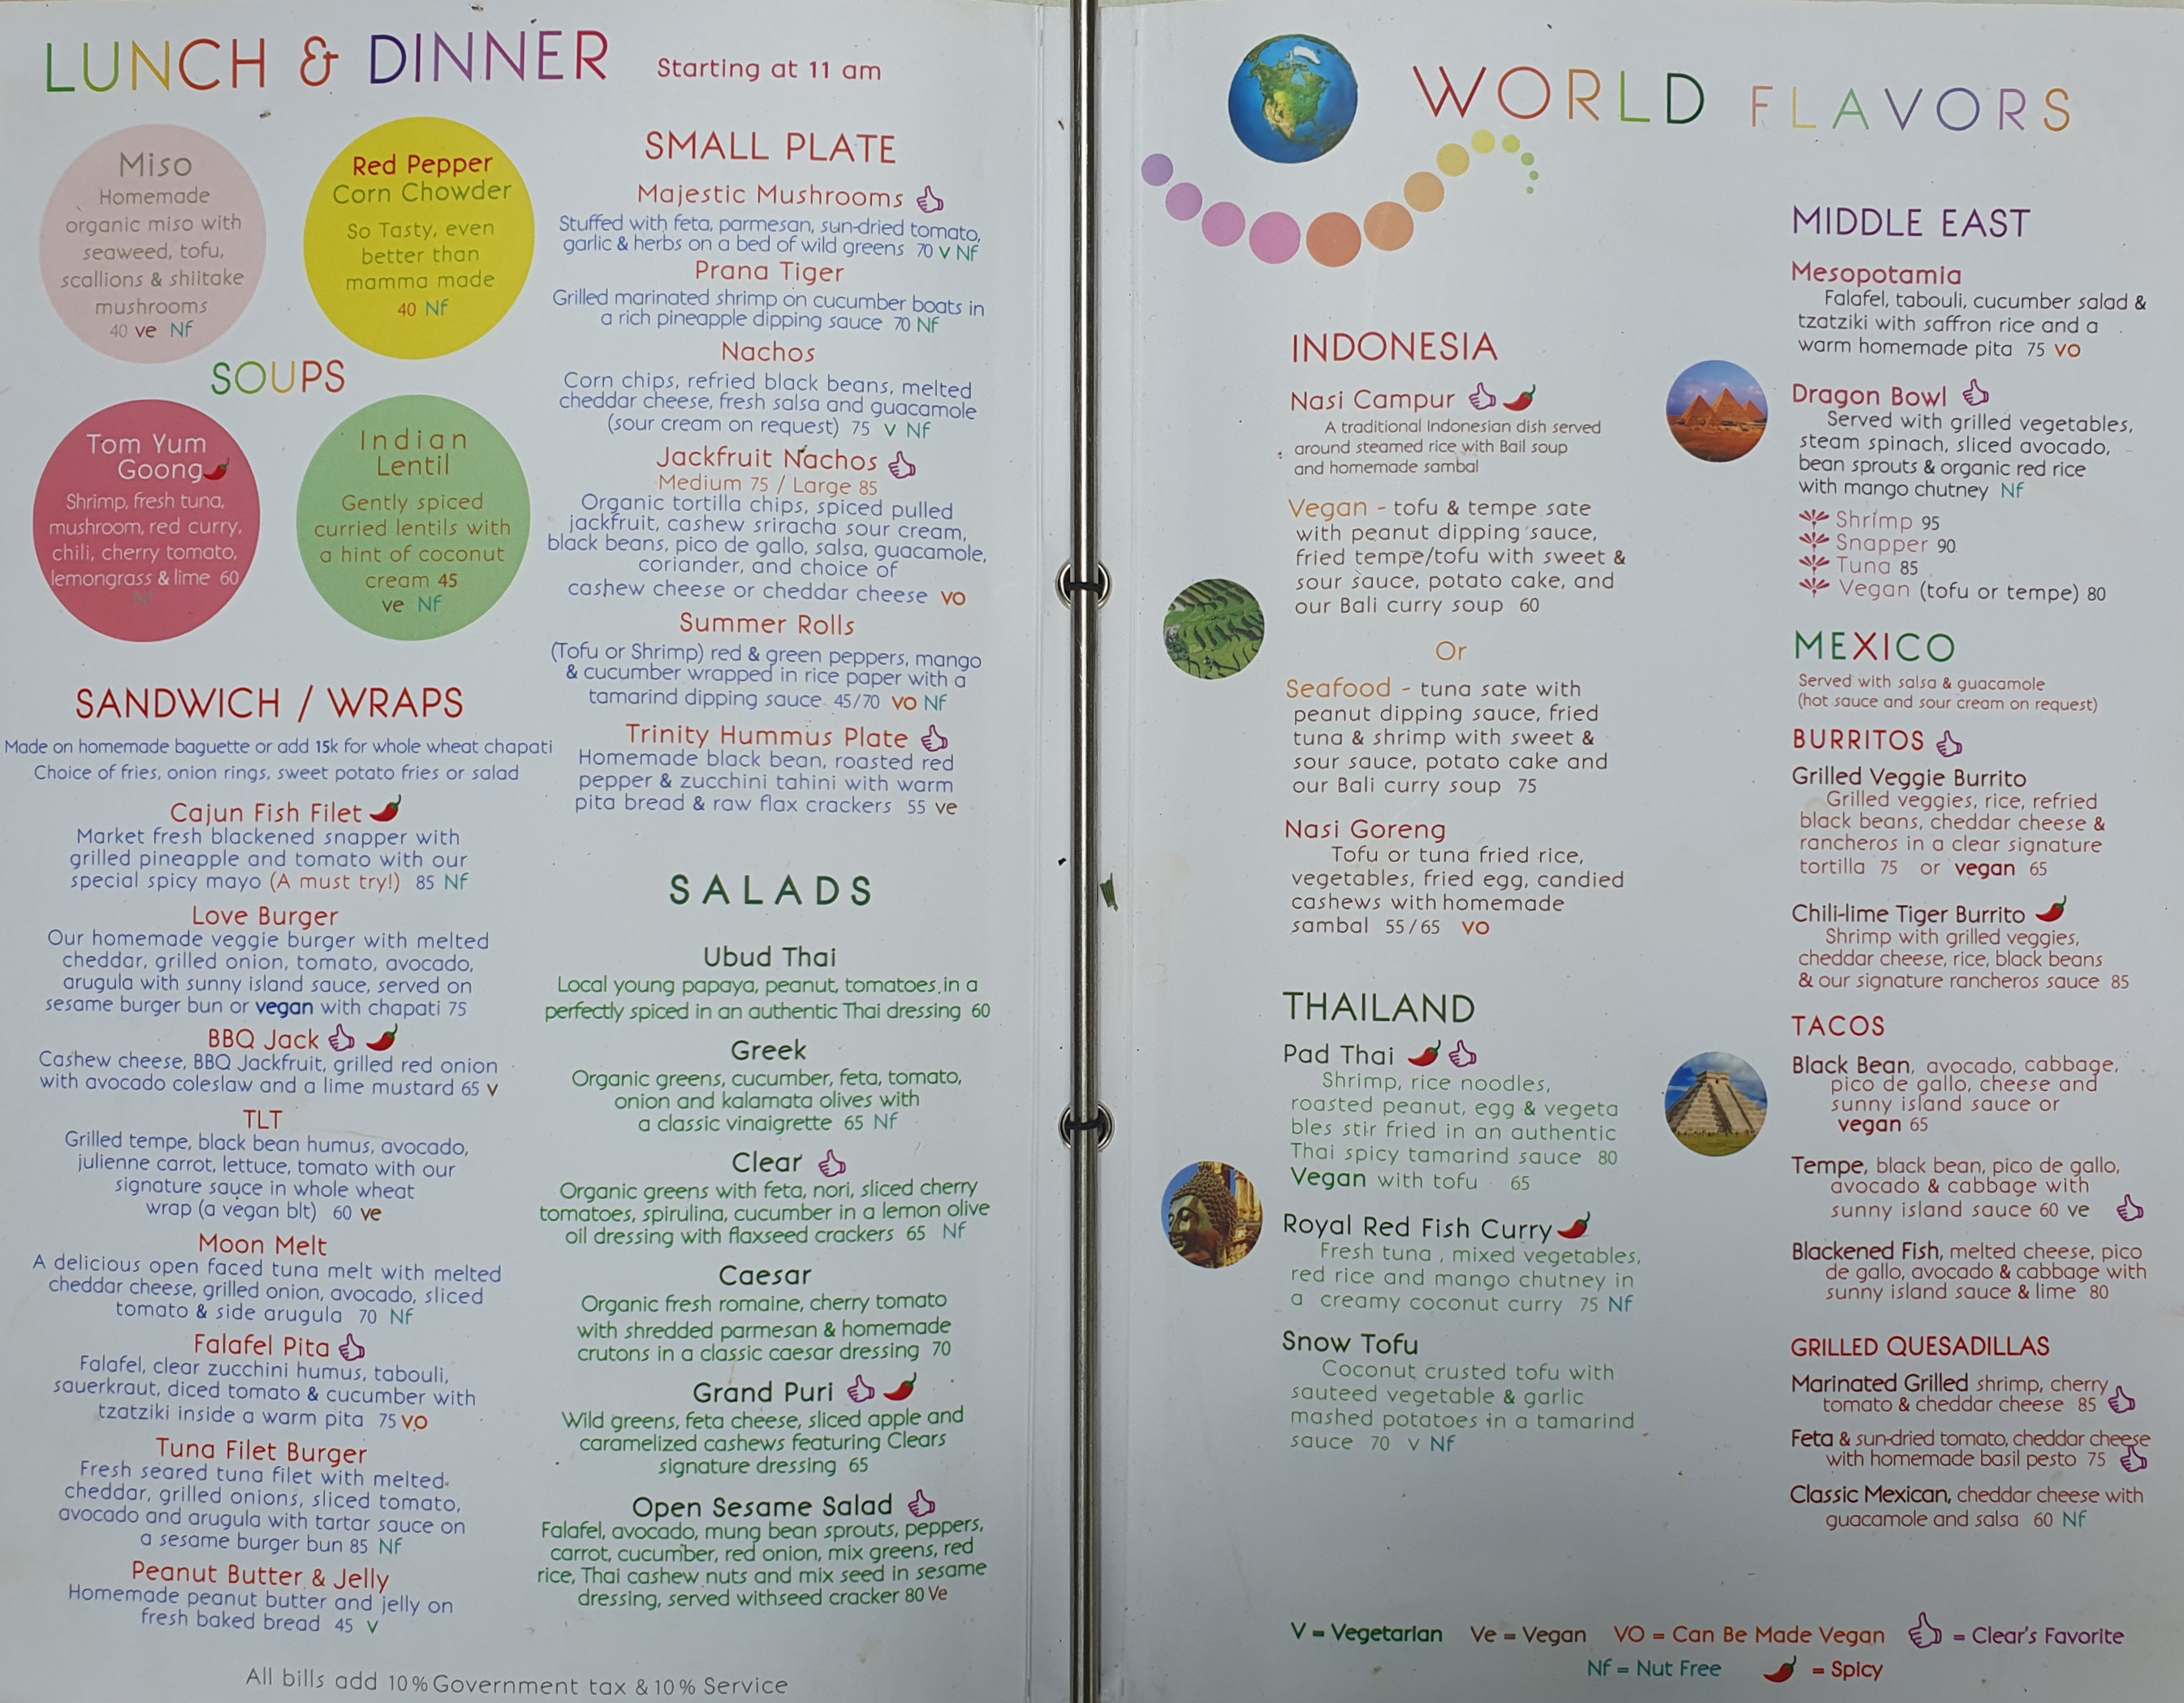 LUNCH & DINNER Starting at 11 am
Miso
Homemade
organic miso with
seaweed, tofu,
scallions & shiitake
mushrooms
40 ve Nf
Red Pepper
Corn Chowder
So Tasty, even
better than
mamma made
40 Nf
SOUPS
Tom Yum
Goong
Shrimp, fresh tuna,
mushroom, red curry,
chili, cherry tomato,
lemongrass & lime 60
Nf
Indian
Lentil
Gently spiced
curried lentils with
a hint of coconut
cream 45
ve Nf
SANDWICH / WRAPS
Made on homemade baguette or add 15k for whole wheat chapati
Choice of fries, onion rings, sweet potato fries or salad
Cajun Fish Filet
Market fresh blackened snapper with
grilled pineapple and tomato with our
special spicy mayo (A must try!) 85 Nf
Love Burger
Our homemade veggie burger with melted
cheddar, grilled onion, tomato, avocado,
arugula with sunny island sauce, served on
sesame burger bun or vegan with chapati 75
BBQ Jack
Cashew cheese, BBQ Jackfruit, grilled red onion
with avocado coleslaw and a lime mustard 65 V
TLT
Grilled tempe, black bean humus, avocado,
julienne carrot, lettuce, tomato with our
signature sauce in whole wheat
wrap (a vegan blt) 60 ve
Moon Melt
A delicious open faced tuna melt with melted
cheddar cheese, grilled onion, avocado, sliced
tomato & side arugula 70 Nf
Falafel Pita
Falafel, clear zucchini humus, tabouli,
sauerkraut, diced tomato & cucumber with
tzatziki inside a warm pita 75 VO
Tuna Filet Burger
Fresh seared tuna filet with melted
cheddar, grilled onions, sliced tomato,
avocado and arugula with tartar sauce on
a sesame burger bun 85 Nf
Peanut Butter & Jelly
Homemade peanut butter and jelly on
fresh baked bread 45 V
SMALL PLATE
Majestic Mushrooms
Stuffed with feta, parmesan, sun-dried tomato,
garlic & herbs on a bed of wild greens 70 V Nf
Prana Tiger
Grilled marinated shrimp on cucumber boats in
a rich pineapple dipping sauce 70 Nf
Nachos
Corn chips, refried black beans, melted
cheddar cheese, fresh salsa and guacamole
(sour cream on request) 75 V Nf
Jackfruit Nachos
Medium 75 / Large 85
Organic tortilla chips, spiced pulled
jackfruit, cashew sriracha sour cream,
black beans, pico de gallo, salsa, guacamole,
coriander, and choice of
cashew cheese or cheddar cheese VO
Summer Rolls
(Tofu or Shrimp) red & green peppers, mango
& cucumber wrapped in rice paper with a
tamarind dipping sauce 45/70 VO Nf
Trinity Hummus Plate
Homemade black bean, roasted red
pepper & zucchini tahini with warm
pita bread & raw flax crackers 55 ve
SALADS
Ubud Thai
Local young papaya, peanut, tomatoes in a
perfectly spiced in an authentic Thai dressing 60
Greek
Organic greens, cucumber, feta, tomato,
onion and kalamata olives with
a classic vinaigrette 65 Nf
Clear
Organic greens with feta, nori, sliced cherry
tomatoes, spirulina, cucumber in a lemon olive
oil dressing with flaxseed crackers 65 Nf
Caesar
Organic fresh romaine, cherry tomato
with shredded parmesan & homemade
crutons in a classic caesar dressing 70
Grand Puri
Wild greens, feta cheese, sliced apple and
caramelized cashews featuring Clears
signature dressing 65
Open Sesame Salad
Falafel, avocado, mung bean sprouts, peppers,
carrot, cucumber, red onion, mix greens, red
rice, Thai cashew nuts and mix seed in sesame
dressing, served withseed cracker 80 Ve
All bills add 10% Government tax & 10% Service
WORLD FLAVORS
INDONESIA
Nasi Campur
A traditional Indonesian dish served
around steamed rice with Bali soup
and homemade sambal
Vegan - tofu & tempe sate
with peanut dipping sauce,
fried tempe/tofu with sweet &
sour sauce, potato cake, and
our Bali curry soup 60
Or
Seafood - tuna sate with
peanut dipping sauce, fried
tuna & shrimp with sweet &
sour sauce, potato cake and
our Bali curry soup 75
Nasi Goreng
Tofu or tuna fried rice,
vegetables, fried egg, candied
cashews with homemade
sambal 55/65 VO
THAILAND
Pad Thai
Shrimp, rice noodles,
roasted peanut, egg & vegeta
bles stir fried in an authentic
Thai spicy tamarind sauce 80
Vegan with tofu 65
Royal Red Fish Curry
Fresh tuna , mixed vegetables,
red rice and mango chutney in
a creamy coconut curry 75 Nf
Snow Tofu
Coconut crusted tofu with
sauteed vegetable & garlic
mashed potatoes in a tamarind
sauce 70 V Nf
MIDDLE EAST
Mesopotamia
Falafel, tabouli, cucumber salad &
tzatziki with saffron rice and a
warm homemade pita 75 VO
Dragon Bowl
Served with grilled vegetables,
steam spinach, sliced avocado,
bean sprouts & organic red rice
with mango chutney Nf
Shrimp 95
Snapper 90
Tuna 85
Vegan (tofu or tempe) 80
MEXICO
Served with salsa & guacamole
(hot sauce and sour cream on request)
BURRITOS
Grilled Veggie Burrito
Grilled veggies, rice, refried
black beans, cheddar cheese &
rancheros in a clear signature
tortilla 75 or vegan 65
Chili-lime Tiger Burrito
Shrimp with grilled veggies,
cheddar cheese, rice, black beans
& our signature rancheros sauce 85
TACOS
Black Bean, avocado, cabbage,
pico de gallo, cheese and
sunny island sauce or
vegan 65
Tempe, black bean, pico de gallo,
avocado & cabbage with
sunny island sauce 60 ve
Blackened Fish, melted cheese, pico
de gallo, avocado & cabbage with
sunny island sauce & lime 80
GRILLED QUESADILLAS
Marinated Grilled shrimp, cherry
tomato & cheddar cheese 85
Feta & sun-dried tomato, cheddar cheese
with homemade basil pesto 75
Classic Mexican, cheddar cheese with
guacamole and salsa 60 Nf
V = Vegetarian Ve = Vegan VO = Can Be Made Vegan = Clear's Favorite
Nf = Nut Free = Spicy